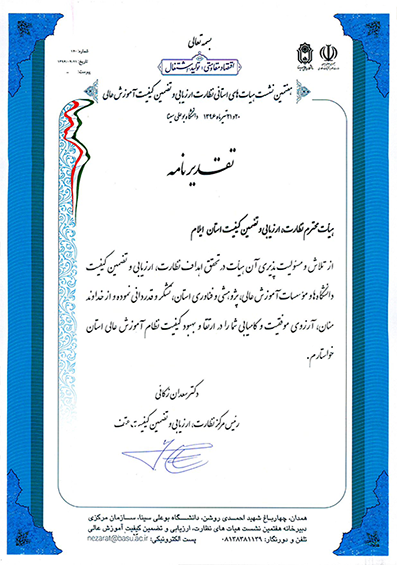 بسمه تعالی
اقتصاد مقاومتی، تولید، اشتغال
شماره:
تاریخ:
پیوست:
هفتمین نشست هیات‌های استانی نظارت، ارزیابی و تضمین کیفیت آموزش عالی
۲۰ و ۲۱ تیر ماه ۱۳۹۶ دانشگاه بوعلی سینا
تقدیرنامه
هیات محترم نظارت، ارزیابی و تضمین کیفیت استان ایلام
از تلاش و مسئولیت پذیری آن هیات در تحقق اهداف نظارت، ارزیابی و تضمین کیفیت
دانشگاه‌ها و مؤسسات آموزش عالی، پژوهشی و فناوری استان، تشکر و قدردانی نموده و از خداوند
منان، آرزوی موفقیت و کامیابی شما را در ارتقا و بهبود کیفیت نظام آموزش عالی استان
خواستارم.
دکتر سعدان زکائی
رئیس مرکز نظارت، ارزیابی و تضمین کیفیت وزارت عتف
همدان، چهارباغ شهید احمدی روشن، دانشگاه بوعلی سینا، سازمان مرکزی
دبیرخانه هفتمین نشست هیات های نظارت، ارزیابی و تضمین کیفیت آموزش عالی
تلفن و دورنگار: ۰۸۱۳۸۳۸۱۱۳۹ پست الکترونیکی: nezarat@basu.ac.ir